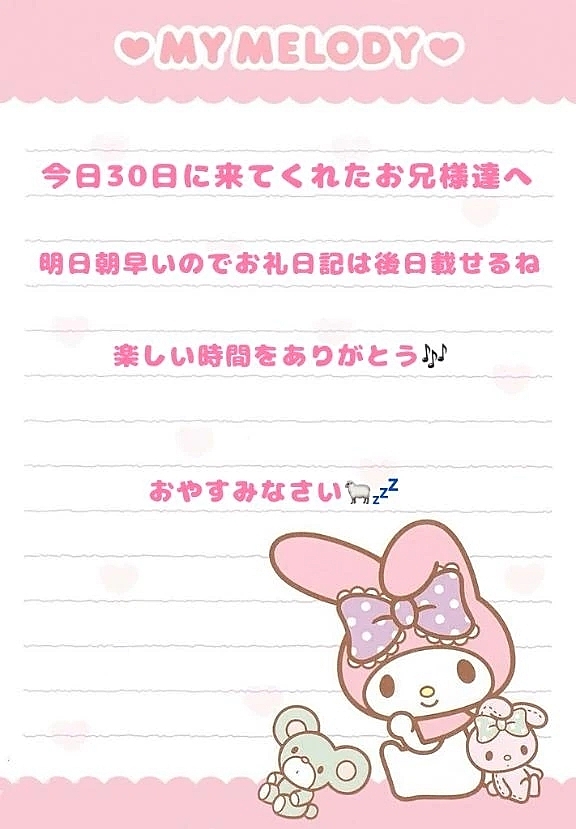 ♥MY MELODY♥
今日30日に来てくれたお兄様達へ
明日朝早いのでお礼日記は後日載せるね
楽しい時間をありがとう🎶
おやすみなさい🐑💤